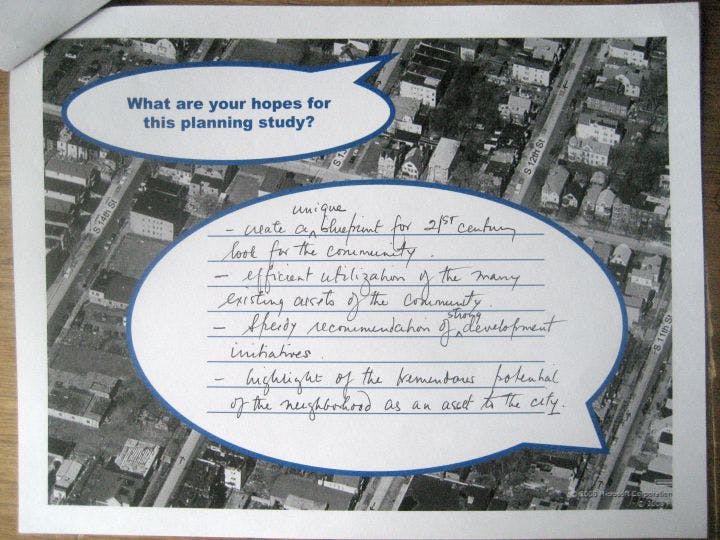 What are your hopes for
this planning study?
S 13
S 12th St
S 14th St
S 11th St
unique
- create a ^ blueprint for 21ST century
look for the community.
- efficient utilization of the many
existing assets of the community.
strong
- Speedy recommendation of ^ development
initiatives.
- highlight of the tremendous potential
of the neighborhood as an asset to the city.
Microsoft Corporation